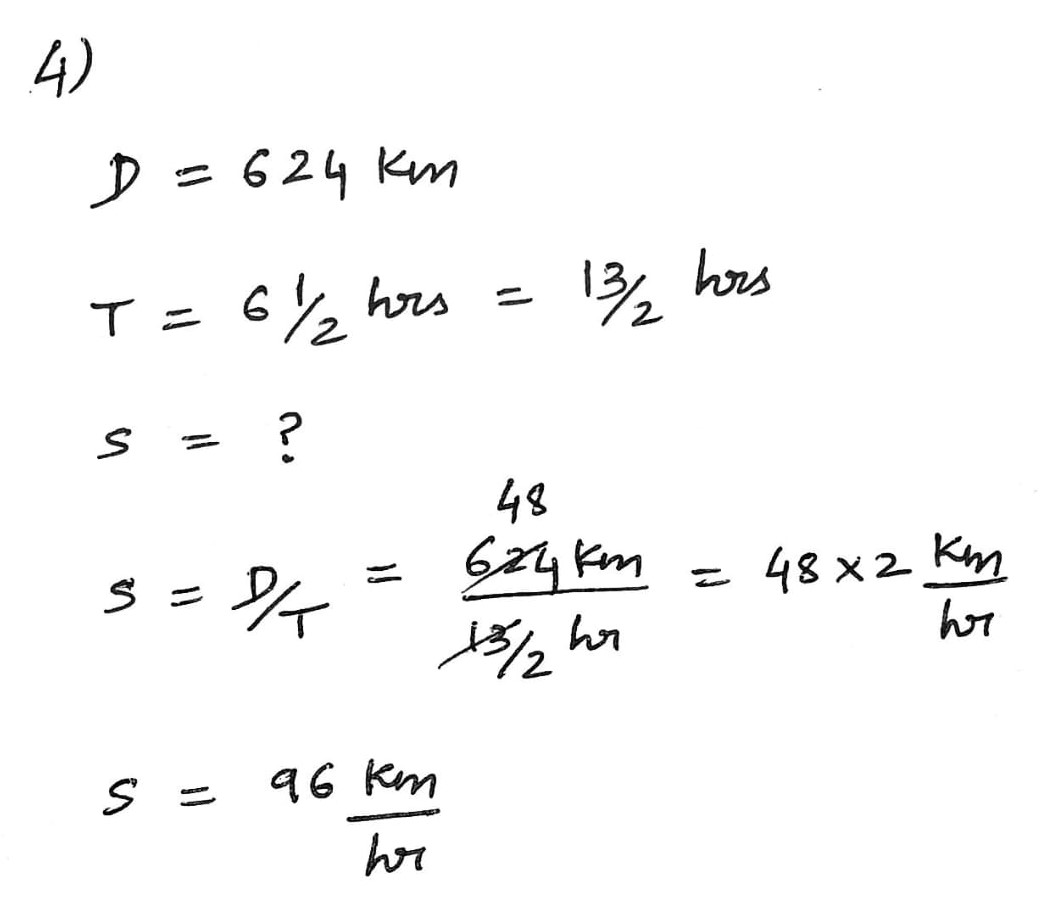 4)
D = 624 Km
T = 6 1/2 hrs = 13/2 hrs
S = ?
48
S = D/T = 624 Km / 13/2 hr = 48 x 2 Km/hr
S = 96 Km/hr